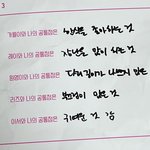 3
가을이와 나의 공통점은
좋아하는 것
레이와 나의 공통점은
장난을 많이 치는 것
원영이와 나의 공통점은
다리 길이가 나쁘지 않은
리즈와 나의 공통점은
것
이서와 나의 공통점은
귀여운 것